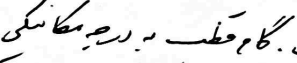 . گام قطب به درجه مکانیکی